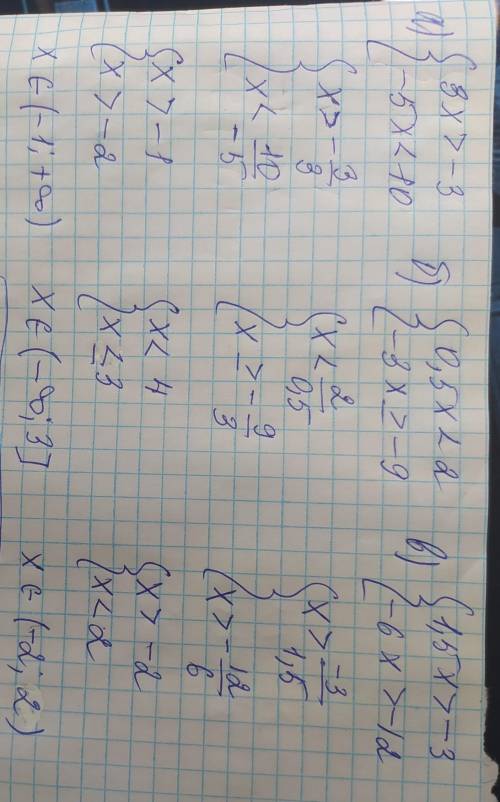 а) { 3x > -3
{ -5x < 10
{ x > -3/3
{ x < 10/-5
{ x > -1
{ x > -2
x ∈ (-1; +∞)
б) { 0,5x < 2
{ -3x ≥ -9
{ x < 2/0,5
{ x ≥ -9/3
{ x < 4
{ x ≤ 3
x ∈ (-∞; 3]
в) { 1,5x > -3
{ -6x > -12
{ x > -3/1,5
{ x > -12/6
{ x > -2
{ x < 2
x ∈ (-2; 2)